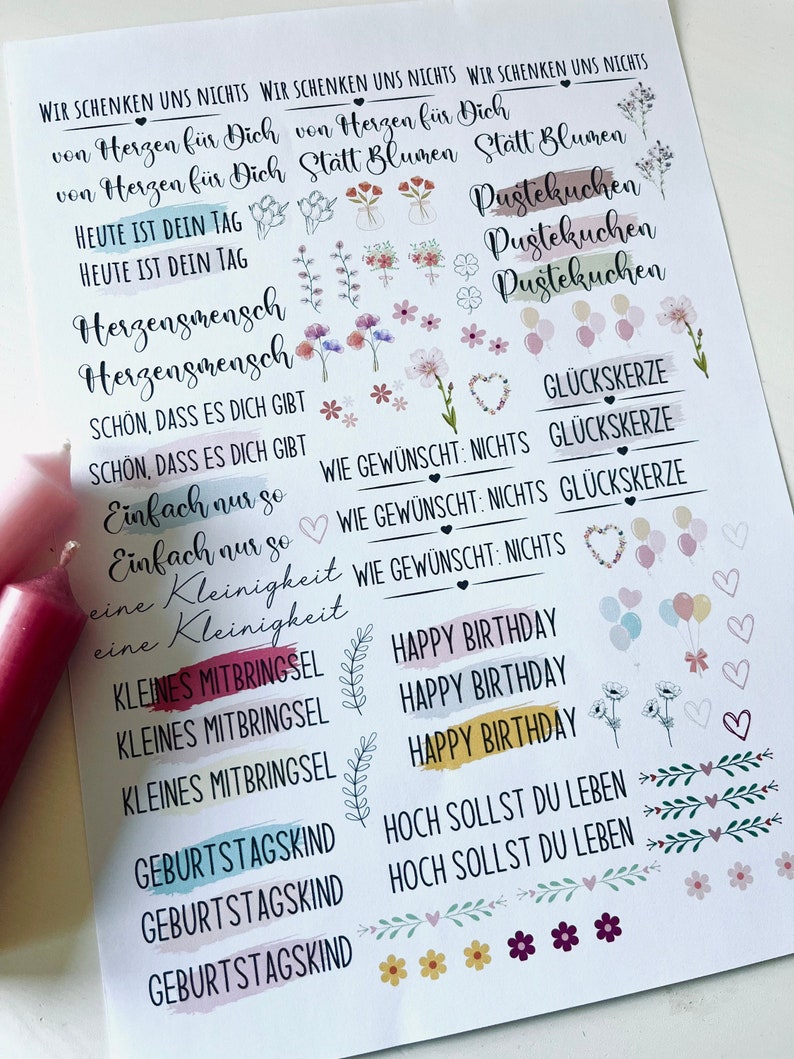 Wir schenken uns nichts
Wir schenken uns nichts
Wir schenken uns nichts
von Herzen für Dich
von Herzen für Dich
von Herzen für Dich
Statt Blumen
Statt Blumen
Heute ist dein Tag
Heute ist dein Tag
Pustekuchen
Pustekuchen
Pustekuchen
Herzensmensch
Herzensmensch
SCHÖN, DASS ES DICH GIBT
SCHÖN, DASS ES DICH GIBT
Einfach nur so
Einfach nur so
eine Kleinigkeit
eine Kleinigkeit
GLÜCKSKERZE
GLÜCKSKERZE
GLÜCKSKERZE
WIE GEWÜNSCHT: NICHTS
WIE GEWÜNSCHT: NICHTS
WIE GEWÜNSCHT: NICHTS
KLEINES MITBRINGSEL
KLEINES MITBRINGSEL
KLEINES MITBRINGSEL
HAPPY BIRTHDAY
HAPPY BIRTHDAY
HAPPY BIRTHDAY
GEBURTSTAGSKIND
GEBURTSTAGSKIND
GEBURTSTAGSKIND
HOCH SOLLST DU LEBEN
HOCH SOLLST DU LEBEN